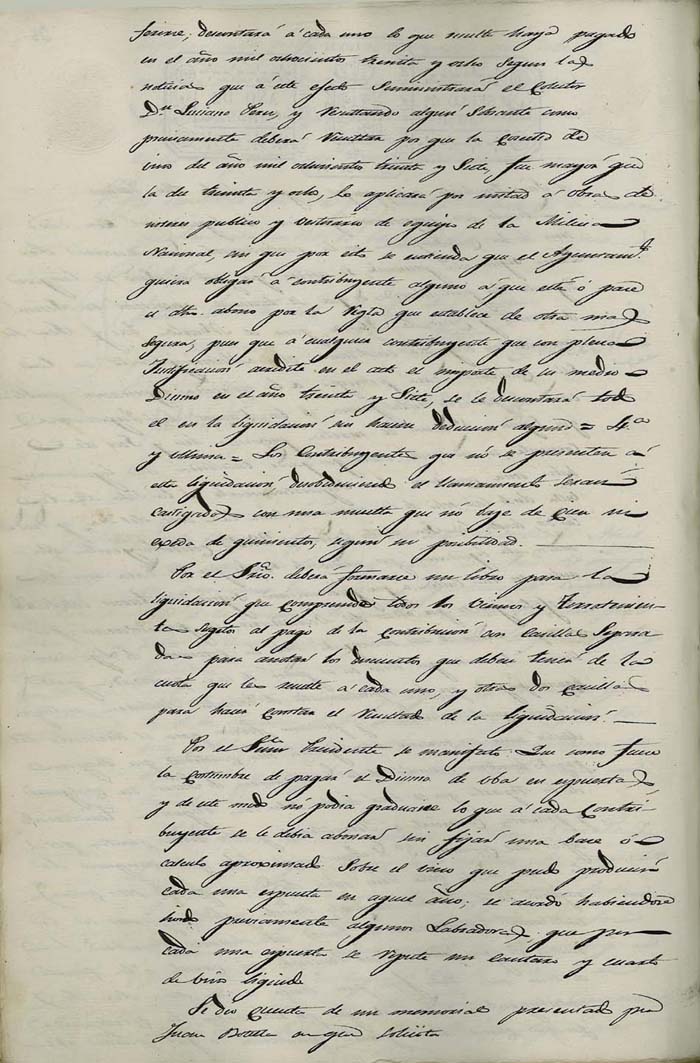 ferirse; descontará á cada uno lo que resulte haya pagado
en el año mil ochocientos treinta y ocho segun las
noticias que á este efecto Suministrará el Colector
Dn Luciano Peru, y Resultando algun Sobrante como
precisamente deberá Resultar por que la Cantidad de
vino del año mil ochocientos treinta y Siete, fue mayor que
la del treinta y ocho, lo aplicará por mitad á obras de
interes publico y vestuario de equipo de la Milicia
Nacional, sin que por esto se entienda que el Ayuntamto
quiera obligar á Contribuyente alguno á que esté ó pase
el dho. abono por la Regla que establece de otra mas
segura, pues que á cualquier contribuyente que con plena
Justificacion acredite en el acto el importe de su medio
Diezmo en el año treinta y Siete, se le descontará todo
el en la liquidacion sin hacerse deduccion alguna = 4a
y ultima = Los Contribuyentes que nó se presenten á
esta liquidacion, desobedeciendo el llamamiento seran
castigados con una multa que nó baje de Cien ni
exceda de quinientos, segun su posibilidad.
Por el Srio. deberá formarse un libro para la
liquidacion que comprenda todos los Vecinos y Terratenien-
tes sugetos al pago de la Contribucion con Casillas Separa-
das para anotar los descuentos que deben tener de la
cuota que les resulte á cada uno, y otras dos Casillas
para hacer Constar el Resultado de la liquidacion.
Por el Señor Presidente se manifestó: Que como fuese
la costumbre de pagar el Diezmo de Uba en espuertas
y de este modo nó podia graduarse lo que á cada Contri-
buyente se le debia abonar sin fijar una base ó
calculo aproximado Sobre el vino que pudo producir
cada una espuerta en aquel año; se acordó habiendose
oido previamente algunos Labradores, que por
cada una espuerta se repute un Cantaro y cuarto
de vino liquido
Se dió cuenta de un memorial presentado por
Juan en que solicita